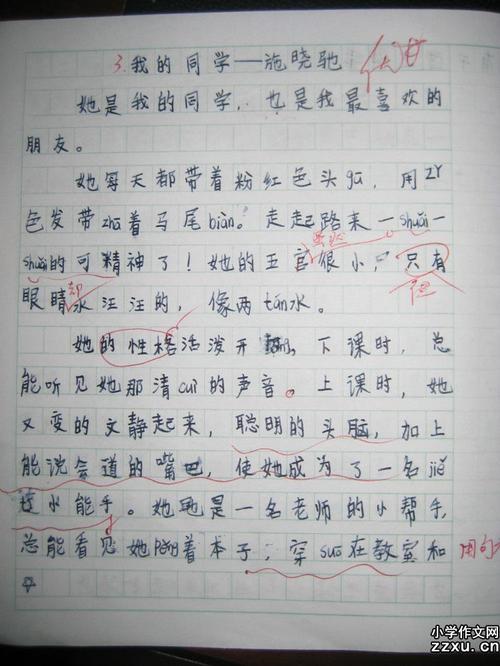 3.我的同学——施晓驰 优甘
她是我的同学，也是我最喜欢的
朋友。
她每天都带着粉红色头gū，用zǐ
色发带zhā着马尾biàn。走起路来一shuǎi一
shuǎi的可精神了！她的五官很小，只有 但
眼睛却水汪汪的，像两tán水。
她的性格活泼开，下课时，总
能听见她那清cuì的声音。上课时，她
又变的文静起来，聪明的头脑，加上
能说会道的嘴巴，使她成为了一名jiě
小能手。她是一名老师的小帮手，
总能看见她pěng着本子，穿suō在教室和 用句
小学作文网
zzxu.cn